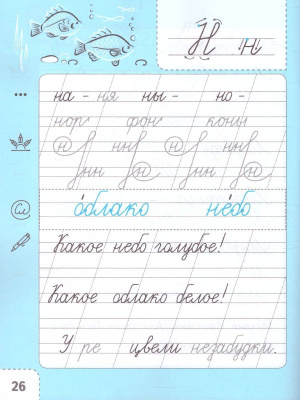 Н н
на - ня ны - но -
нор фон кони
н нн н нн
нн н нн н
Сл
облако небо
Какое небо голубое!
Какое облако белое!
У ре цвели незабудки.
26